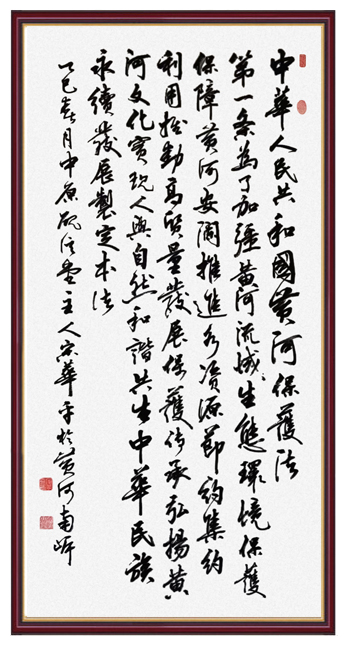 中華人民共和國黃河保護法
第一条為了加強黃河流域生態環境保護
保障黃河安瀾推進水資源節約集約
利用推動高質量發展保護传承弘揚黃
河文化實現人與自然和諧共生中華民族
永續發展製定本法
乙巳春月中原主人宗華平於黃河南岸